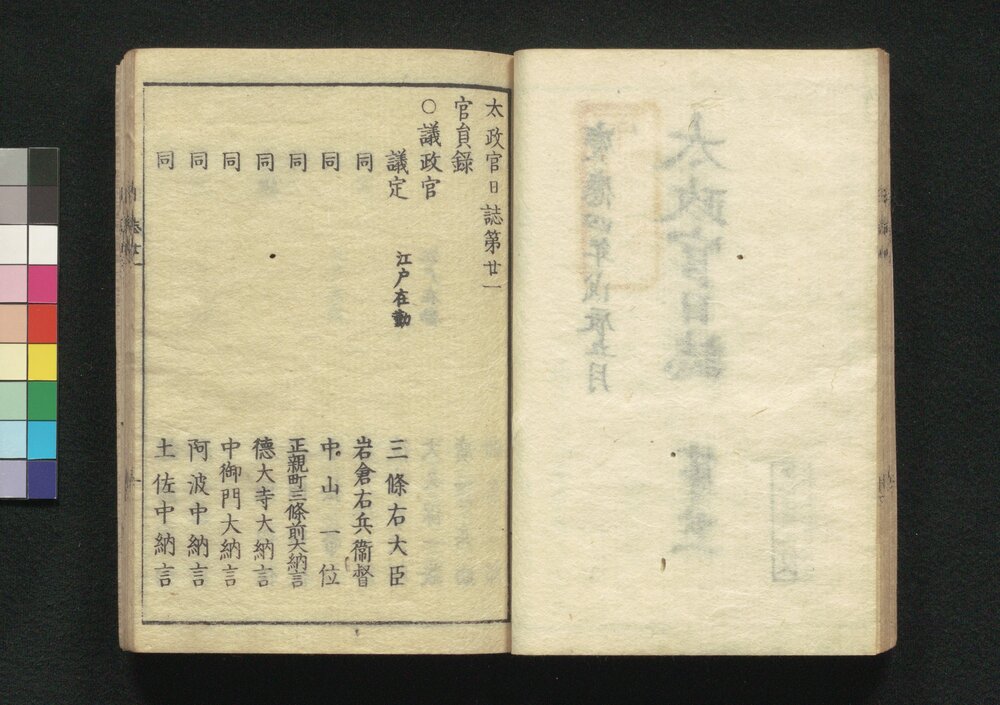 太政官日誌第廿一
官員録
○議政官
議定 江戸在勤 三條右大臣
同 岩倉右兵衞督
同 中山一位
同 正親町三條前大納言
同 德大寺大納言
同 中御門大納言
同 阿波中納言
同 土佐中納言